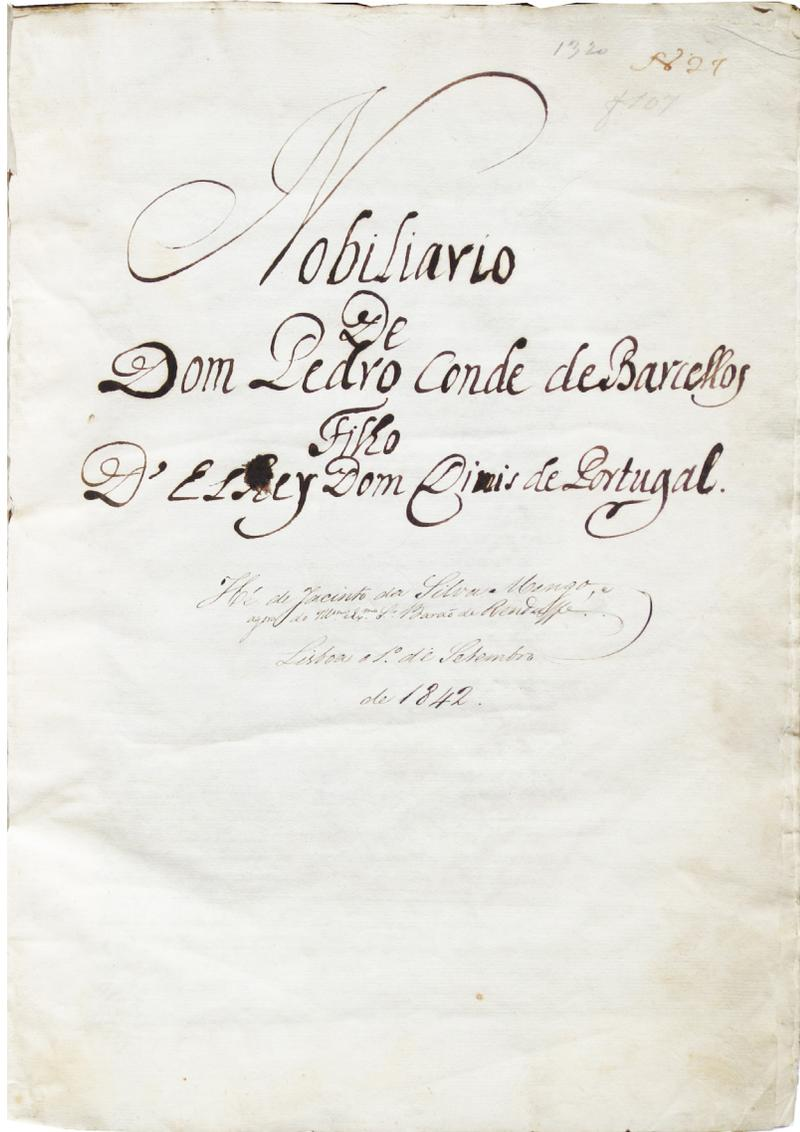 1320
Nº 27
107
Nobiliario
De
Dom Pedro Conde de Barcellos
Filho
D' ElRey Dom Dinis de Portugal.
Hé de Jacinto da Silva Mengo, e
agora do Illmo Exmo Sr. Barão de Rendufe.
Lisboa o 1º de Setembro
de 1842.